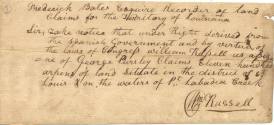 Frederick Bates Esquire Recorder of land
Claims for the Territory of Louisiana
Sir, take notice that under Right derived from
the Spanish Government and by vertue of
the laws of Congress William Russell as
of George Pursley Claims Eleven hundred
arpens of land Situate in the district of St
Louis on the waters of Labadia Creek
Wm Russell